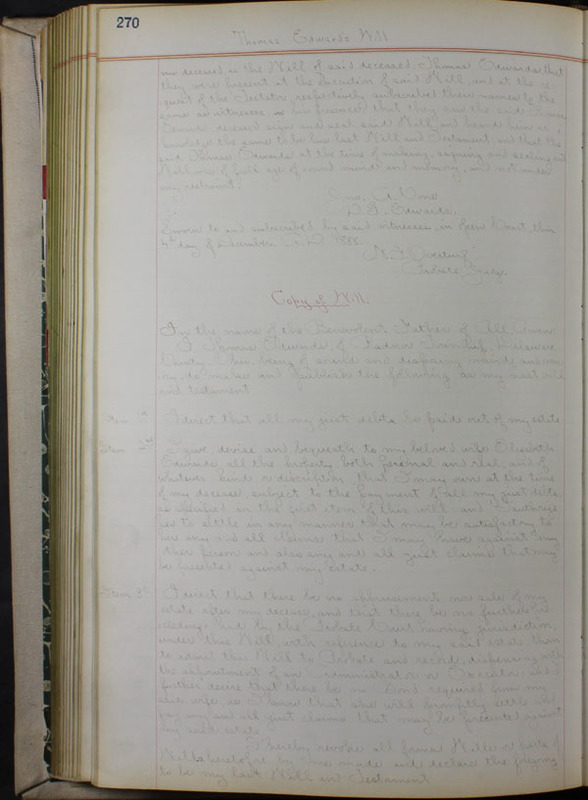 270
Thomas Edwards Will
now deceased, is the Will of said deceased, Thomas Edwards, that
they were present at the Execution of said Will, and at the re-
quest of the Testator, respectively subscribed their names to the
same as witnesses, in his presence, that they saw the said Thomas
Edwards deceased sign and seal said Will, and heard him ac-
knowledge the same to be his last Will and Testament, and that the
said Thomas Edwards at the time of making, signing and sealing said
Will was of full age of sound mind and memory, and not under
any restraint.
Jones
D. S. Edwards.
Sworn to and subscribed by said witnesses, in Open Court, this
4th day of December A.D. 1888.
Probate Judge.
Copy of Will.
In the name of the Benevolent Father of All, Amen.
I Thomas Edwards of Radnor Township, Delaware
County Ohio, being of sound and disposing mind and mem-
ory, do make and publish the following as my last will
and testament
Item 1st I direct that all my just debts be paid out of my estate
Item 2nd I give, devise and bequeath to my beloved wife Elizabeth
Edwards all the property, both personal and real, and of
whatever kind or description that I may own at the time
of my decease, subject to the payment of all my just debts
as specified in the first item of this will and I authorize
her to settle in any manner that may be satisfactory to
her any and all claims that I may have against any
other person and also any and all just claims that may
be presented against my estate.
Item 3rd I direct that there be no appraisement nor sale of my
estate after my decease, and that there be no further pro-
ceedings had by the Probate Court having jurisdiction
under this Will, with reference to my said estate than
to admit the Will to Probate and record, dispensing with
the appointment of an administrator or Executor and I
further desire that there be no Bond required from my
said wife as I know that she will promptly settle and
pay any and all just claims that may be presented against
my said estate.
I hereby revoke all former Wills or parts of
Wills heretofore by me made and declare the foregoing
to be my last Will and Testament